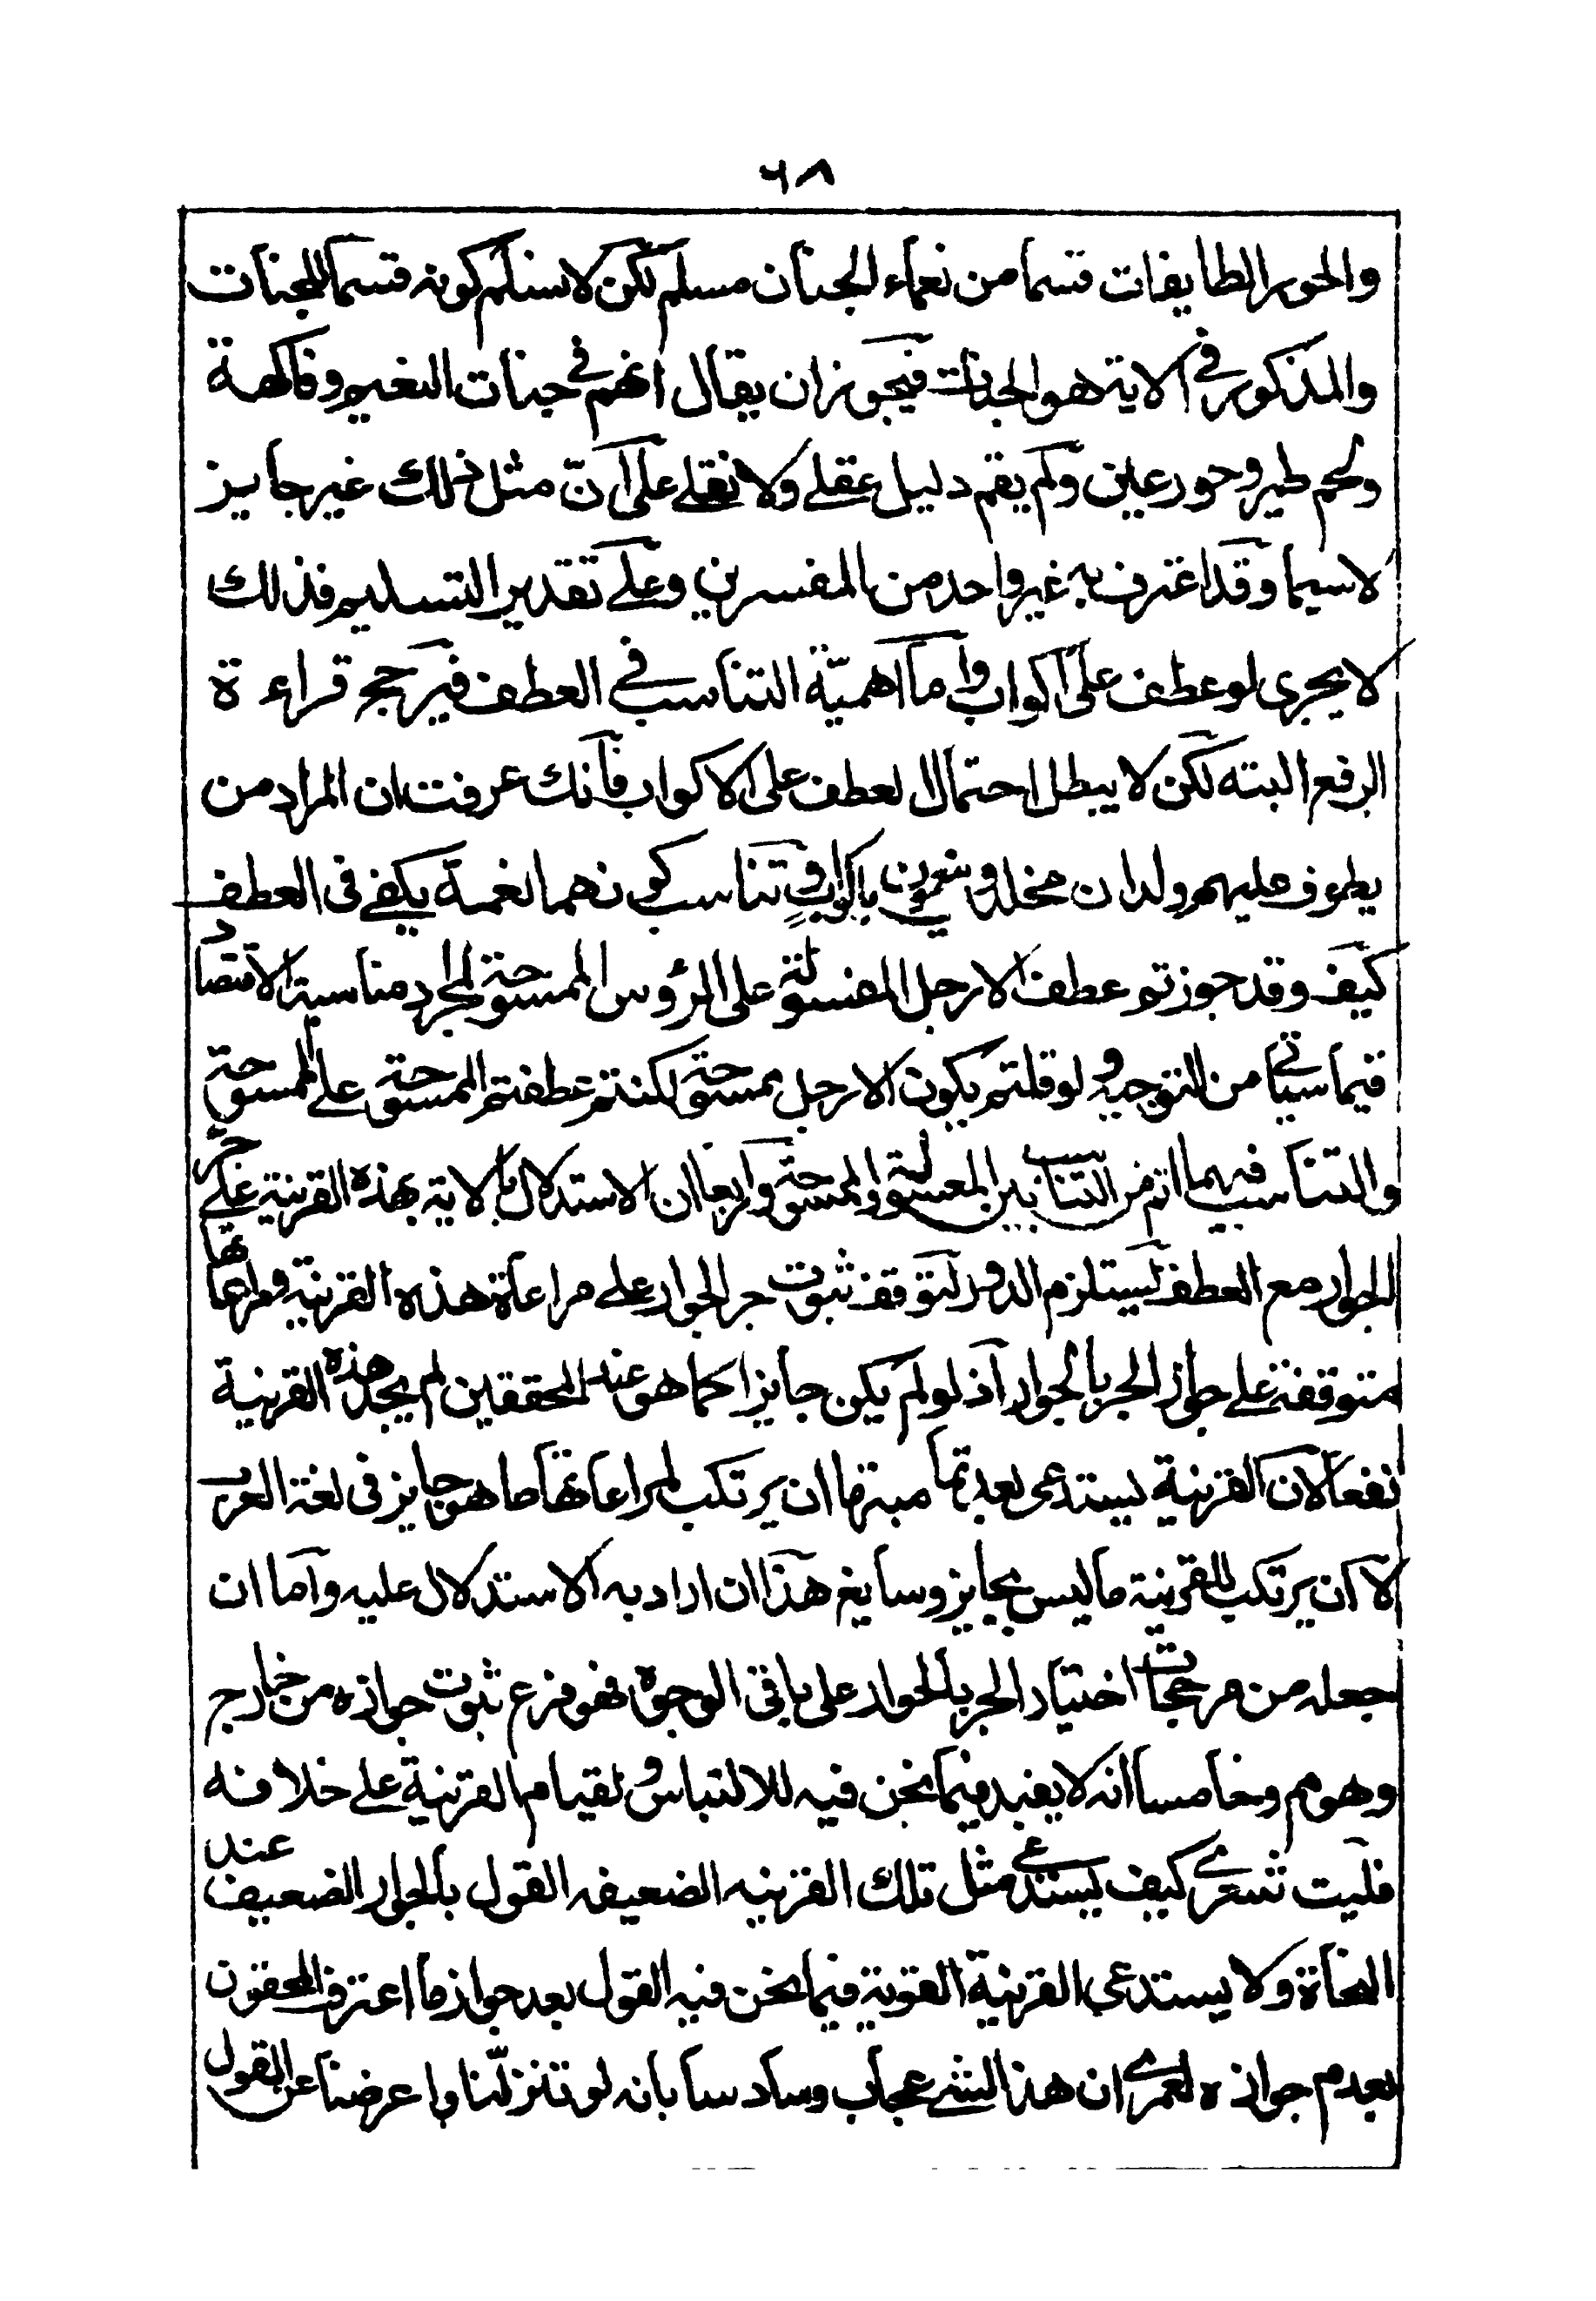 ٦٨
والحور الطايفات قسما من نعماء الجنان مسلم لكن لا نسلم كونه قسما للجنات
والمذكور في الاية هو الجنات فيجوز ان يقال انهم في جنات النعيم وفاكهة
ولحم طير وحور عين ولم يقم دليل عقلي ولا نقلي على ان مثل ذلك غير جايز
لا سيما وقد اعترف به غير واحد من المفسرين وعلى تقدير التسليم فذلك
لا يجرى لو عطف على اكواب واما اهميّة التناسب في العطف فيرجح قراءة
الرفع البته لكن لا يبطل احتمال العطف على الاكواب فانك عرفت ان المراد من
يطوف عليهم ولدان مخلدون ينعمون باكواب وتناسب كونهما نعمة يكفي في العطف
كيف وقد جوزتم عطف الارجل المغسولة على الرؤس الممسوحة لمجرد مناسبة الاقتصاد
فيما سياتي من التوجيه ولو قلتم بكون الارجل ممسوحة لكنتم عطفتم الممسوحة على الممسوحة
والتناسب فيهما اتم من التناسب بين المغسولة والممسوحة ورابعا ان الاستدلال بالاية بهذه القرينة على جر
الجوار مع العطف ليستلزم الدور لتوقف ثبوت جر الجوار على مراعاة هذه القرينة ومراعاتها
متوقفة على جواز الجر بالجوار اذ لو لم يكن جايزا كما هو عند المحققين لم يجد هذه القرينة
نفعا لان القرينة يستدعى بعد تمامية قرا ان يرتكب لمراعاتها ما هو جايز في لغة العرب
لا ان يرتكب للقرينة ما ليس بجايز وسايغ هذا ان اراد به الاستدلال عليه واما ان
جعله من مرجحات اختيار الجر بالجوار على باقي الوجوه فهو فرع ثبوت جوازه من خارج
وهو مم وخامسا انه لا يفيد فيما نحن فيه للالتباس ولقيام القرينة على خلافه
فليت شعري كيف يستدعي مثل تلك القرينه الضعيفه القول بالجوار الضعيف عند
النحاة ولا يستدعي القرينة القوية فيما نحن فيه القول بعد جواز ما اعترف المحققون
بعدم جوازه لعمري ان هذا لشيء عجاب وسادسا بانه لو تنزلنا واعرضنا عن القول